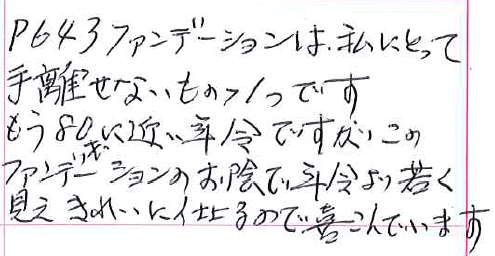 P643ファンデーションは、私にとって
手離せないもの1つです
もう80に近い年令ですが、この
ファンデーションのお陰で、年令より若く
見えきれいに仕上るので喜こんでいます